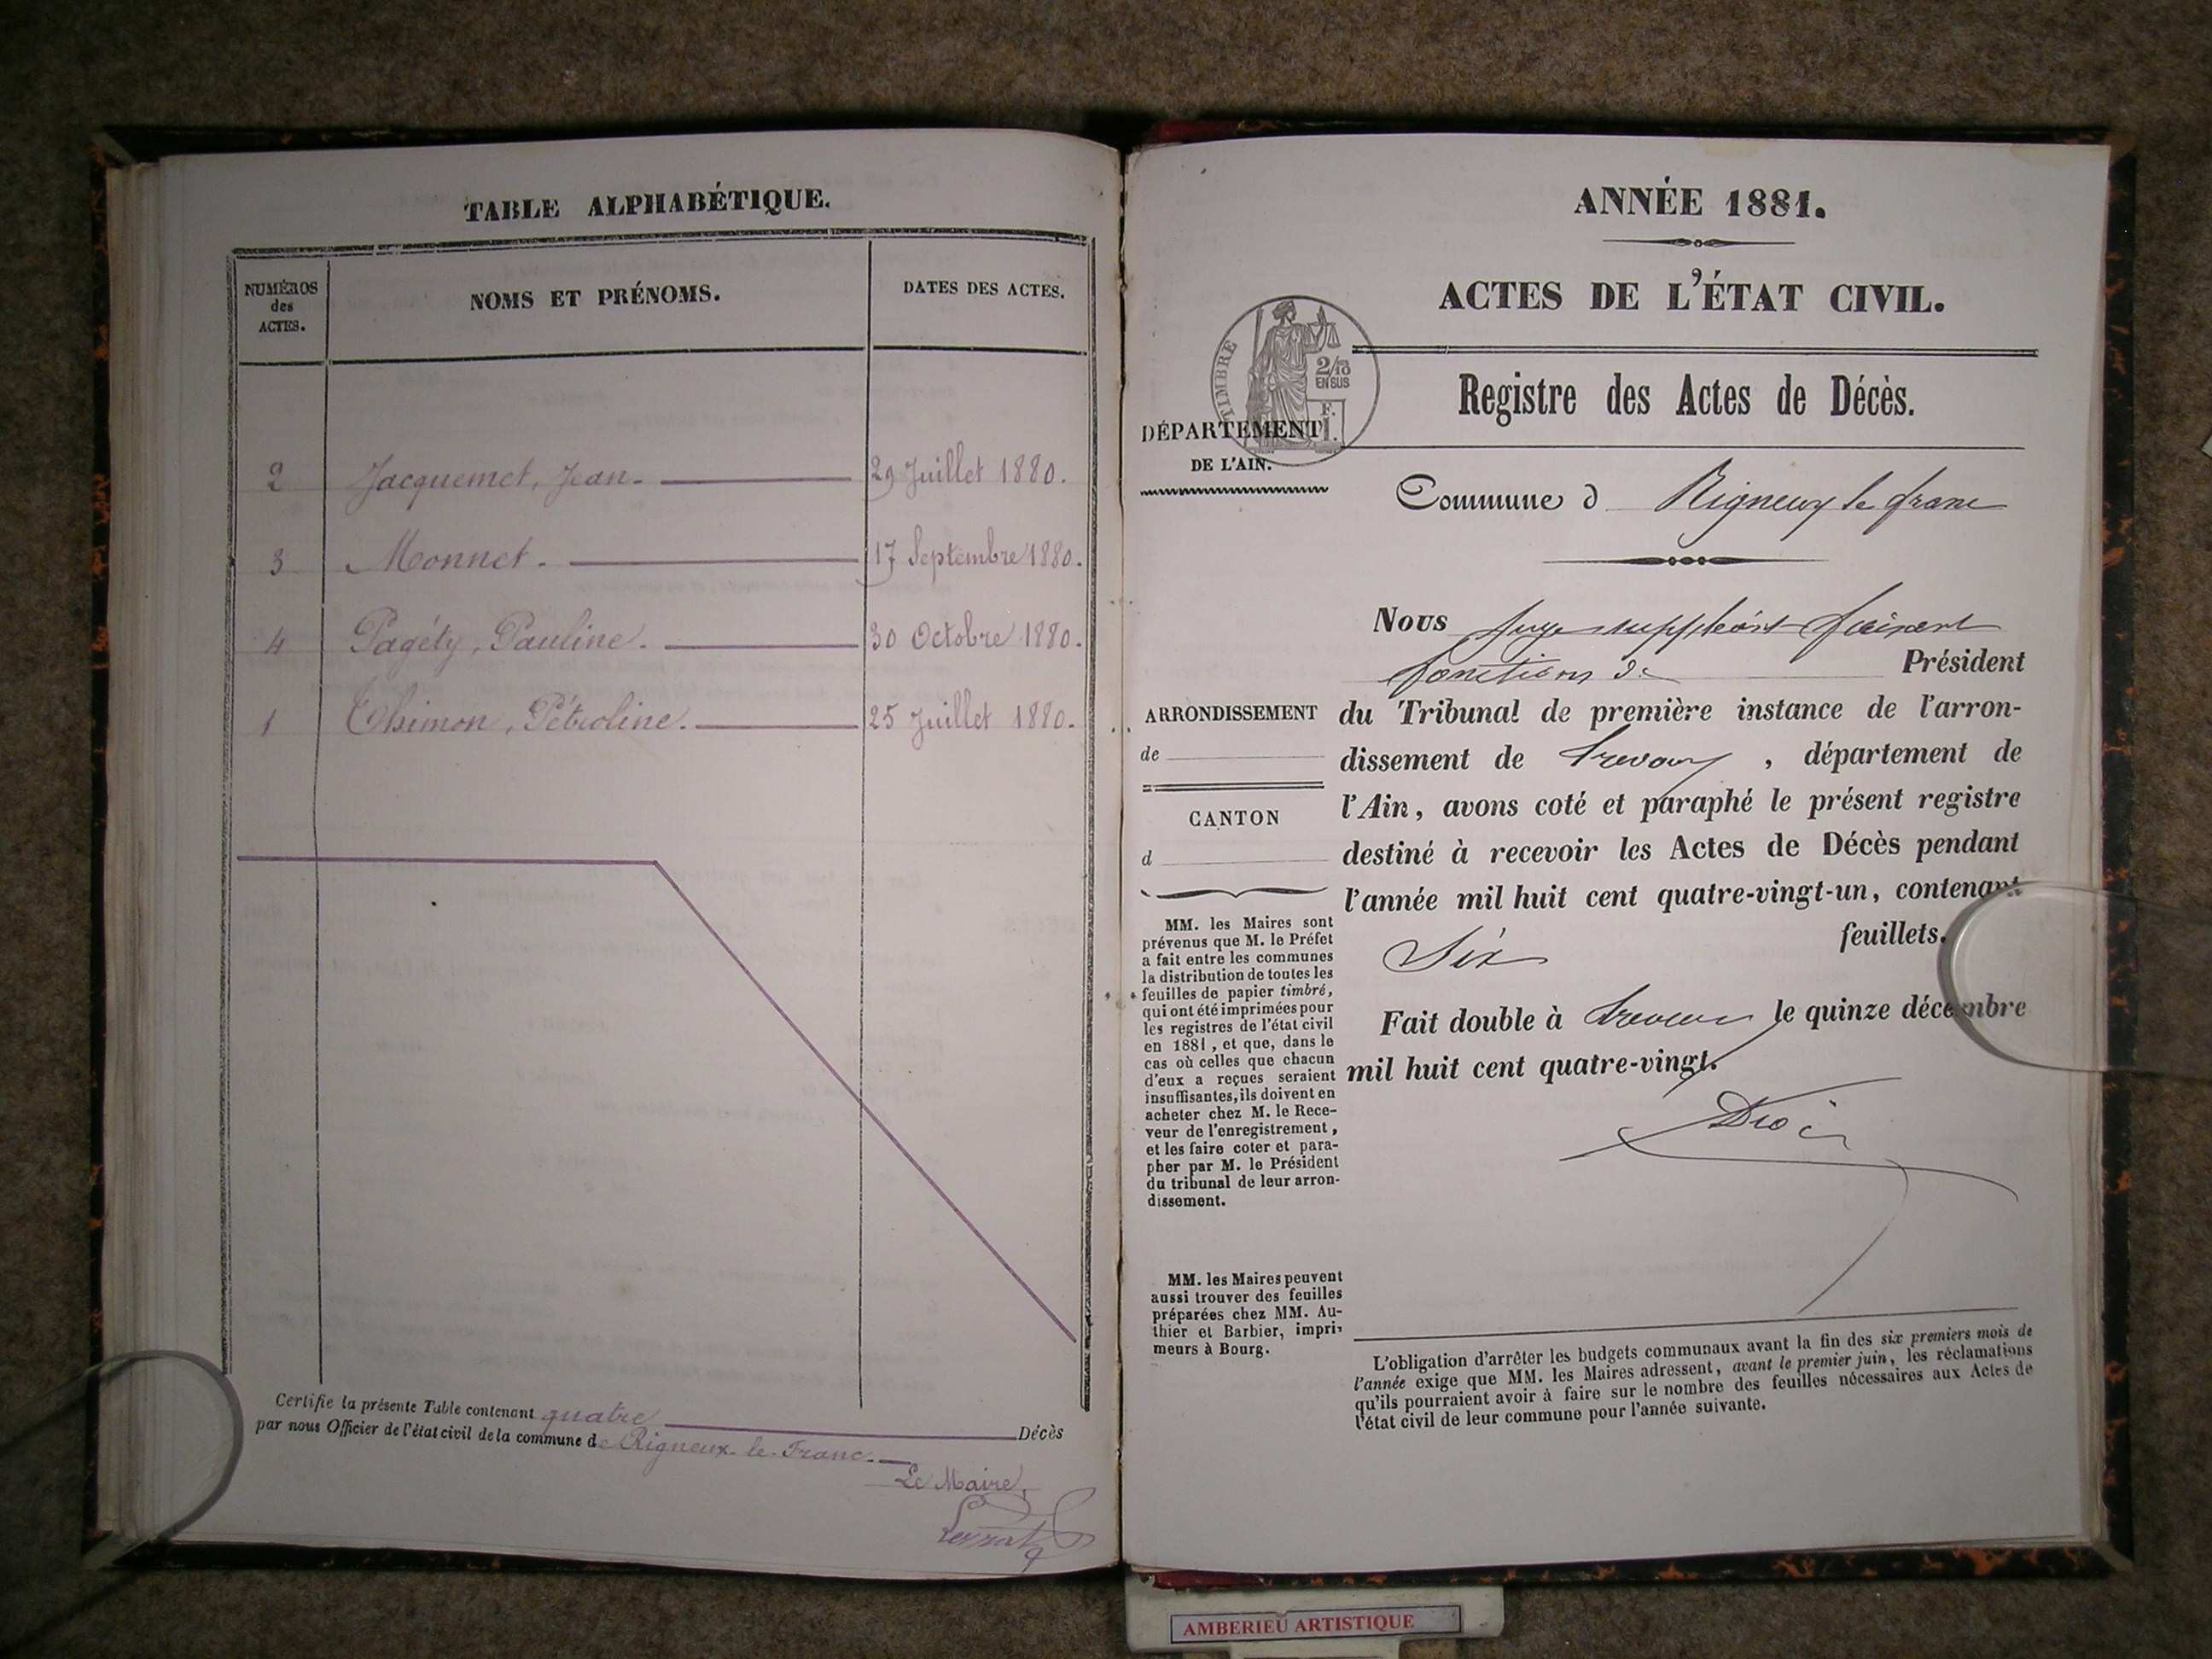 TABLE ALPHABÉTIQUE.
NUMÉROS des ACTES.
NOMS ET PRÉNOMS.
DATES DES ACTES.
2 Jacquemet, Jean. 29 Juillet 1880.
3 Monnet. 17 Septembre 1880.
4 Pagéty, Pauline. 30 Octobre 1880.
1 Thimon, Pétroline. 25 Juillet 1880.
Certifie la présente Table contenant quatre Décès
par nous Officier de l'état civil de la commune de Rigneux-le-Franc.
Le Maire,
ANNÉE 1881.
ACTES DE L'ÉTAT CIVIL.
TIMBRE
2/10
EN SUS
F.
Registre des Actes de Décès.
DÉPARTEMENT
DE L'AIN.
Commune d Rigneux le franc
Nous juge suppléant faisant
fonctions de Président
ARRONDISSEMENT
de
CANTON
d
du Tribunal de première instance de l'arron-
dissement de Trevoux, département de
l'Ain, avons coté et paraphé le présent registre
destiné à recevoir les Actes de Décès pendant
l'année mil huit cent quatre-vingt-un, contenant
Six feuillets.
Fait double à Trevoux le quinze décembre
mil huit cent quatre-vingt.
MM. les Maires sont
prévenus que M. le Préfet
a fait entre les communes
la distribution de toutes les
feuilles de papier timbré,
qui ont été imprimées pour
les registres de l'état civil
en 1881, et que, dans le
cas où celles que chacun
d'eux a reçues seraient
insuffisantes, ils doivent en
acheter chez M. le Rece-
veur de l'enregistrement,
et les faire coter et para-
pher par M. le Président
du tribunal de leur arron-
dissement.
MM. les Maires peuvent
aussi trouver des feuilles
préparées chez MM. Au-
thier et Barbier, impri-
meurs à Bourg.
L'obligation d'arrêter les budgets communaux avant la fin des six premiers mois de
l'année exige que MM. les Maires adressent, avant le premier juin, les réclamations
qu'ils pourraient avoir à faire sur le nombre des feuilles nécessaires aux Actes de
l'état civil de leur commune pour l'année suivante.
AMBERIEU ARTISTIQUE